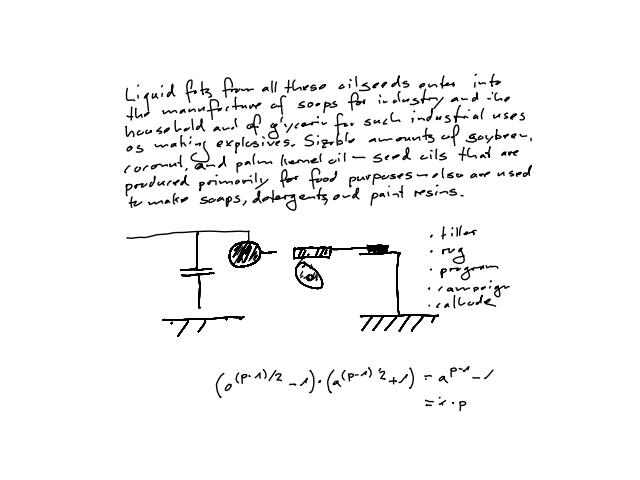 Liquid fats from all these oilseeds enter into
the manufacture of soaps for industry and the
household and of glycerin for such industrial uses
as making explosives. Sizable amounts of soybean,
coconut, and palm kernel oil – seed oils that are
produced primarily for food purposes – also are used
to make soaps, detergents, and paint resins.
• tiller
• rug
• program
• campaign
• cathode
(a^(p-1)/2 - 1) · (a^(p-1)/2 + 1) = a^(p-1) - 1
= x · p